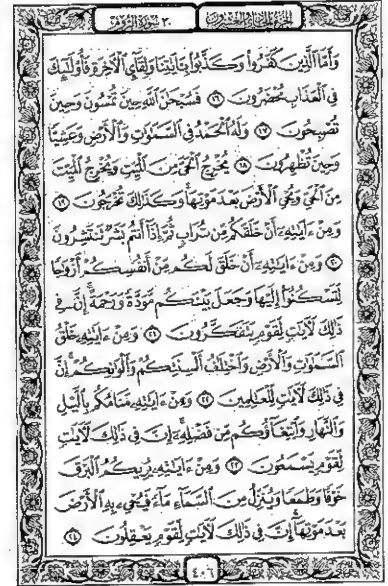 الجزء الحادي والعشرون
٣٠ سورة الروم
وَأَمَّا ٱلَّذِينَ كَفَرُوا۟ وَكَذَّبُوا۟ بِـَٔايَـٰتِنَا وَلِقَآئِ ٱلْـَٔاخِرَةِ فَأُو۟لَـٰٓئِكَ
فِى ٱلْعَذَابِ مُحْضَرُونَ ١٦ فَسُبْحَـٰنَ ٱللَّهِ حِينَ تُمْسُونَ وَحِينَ
تُصْبِحُونَ ١٧ وَلَهُ ٱلْحَمْدُ فِى ٱلسَّمَـٰوَٰتِ وَٱلْأَرْضِ وَعَشِيًّا
وَحِينَ تُظْهِرُونَ ١٨ يُخْرِجُ ٱلْحَىَّ مِنَ ٱلْمَيِّتِ وَيُخْرِجُ ٱلْمَيِّتَ
مِنَ ٱلْحَىِّ وَيُحْىِ ٱلْأَرْضَ بَعْدَ مَوْتِهَا وَكَذَٰلِكَ تُخْرَجُونَ ١٩
وَمِنْ ءَايَـٰتِهِۦٓ أَنْ خَلَقَكُم مِّن تُرَابٍ ثُمَّ إِذَآ أَنتُم بَشَرٌ تَنتَشِرُونَ
٢٠ وَمِنْ ءَايَـٰتِهِۦٓ أَنْ خَلَقَ لَكُم مِّنْ أَنفُسِكُمْ أَزْوَٰجًا
لِّتَسْكُنُوٓا۟ إِلَيْهَا وَجَعَلَ بَيْنَكُم مَّوَدَّةً وَرَحْمَةً إِنَّ فِى
ذَٰلِكَ لَـَٔايَـٰتٍ لِّقَوْمٍ يَتَفَكَّرُونَ ٢١ وَمِنْ ءَايَـٰتِهِۦ خَلْقُ
ٱلسَّمَـٰوَٰتِ وَٱلْأَرْضِ وَٱخْتِلَـٰفُ أَلْسِنَتِكُمْ وَأَلْوَٰنِكُمْ إِنَّ
فِى ذَٰلِكَ لَـَٔايَـٰتٍ لِّلْعَـٰلِمِينَ ٢٢ وَمِنْ ءَايَـٰتِهِۦ مَنَامُكُم بِٱلَّيْلِ
وَٱلنَّهَارِ وَٱبْتِغَآؤُكُم مِّن فَضْلِهِۦٓ إِنَّ فِى ذَٰلِكَ لَـَٔايَـٰتٍ
لِّقَوْمٍ يَسْمَعُونَ ٢٣ وَمِنْ ءَايَـٰتِهِۦ يُرِيكُمُ ٱلْبَرْقَ
خَوْفًا وَطَمَعًا وَيُنَزِّلُ مِنَ ٱلسَّمَآءِ مَآءً فَيُحْىِۦ بِهِ ٱلْأَرْضَ
بَعْدَ مَوْتِهَآ إِنَّ فِى ذَٰلِكَ لَـَٔايَـٰتٍ لِّقَوْمٍ يَعْقِلُونَ ٢٤
٤٠٦